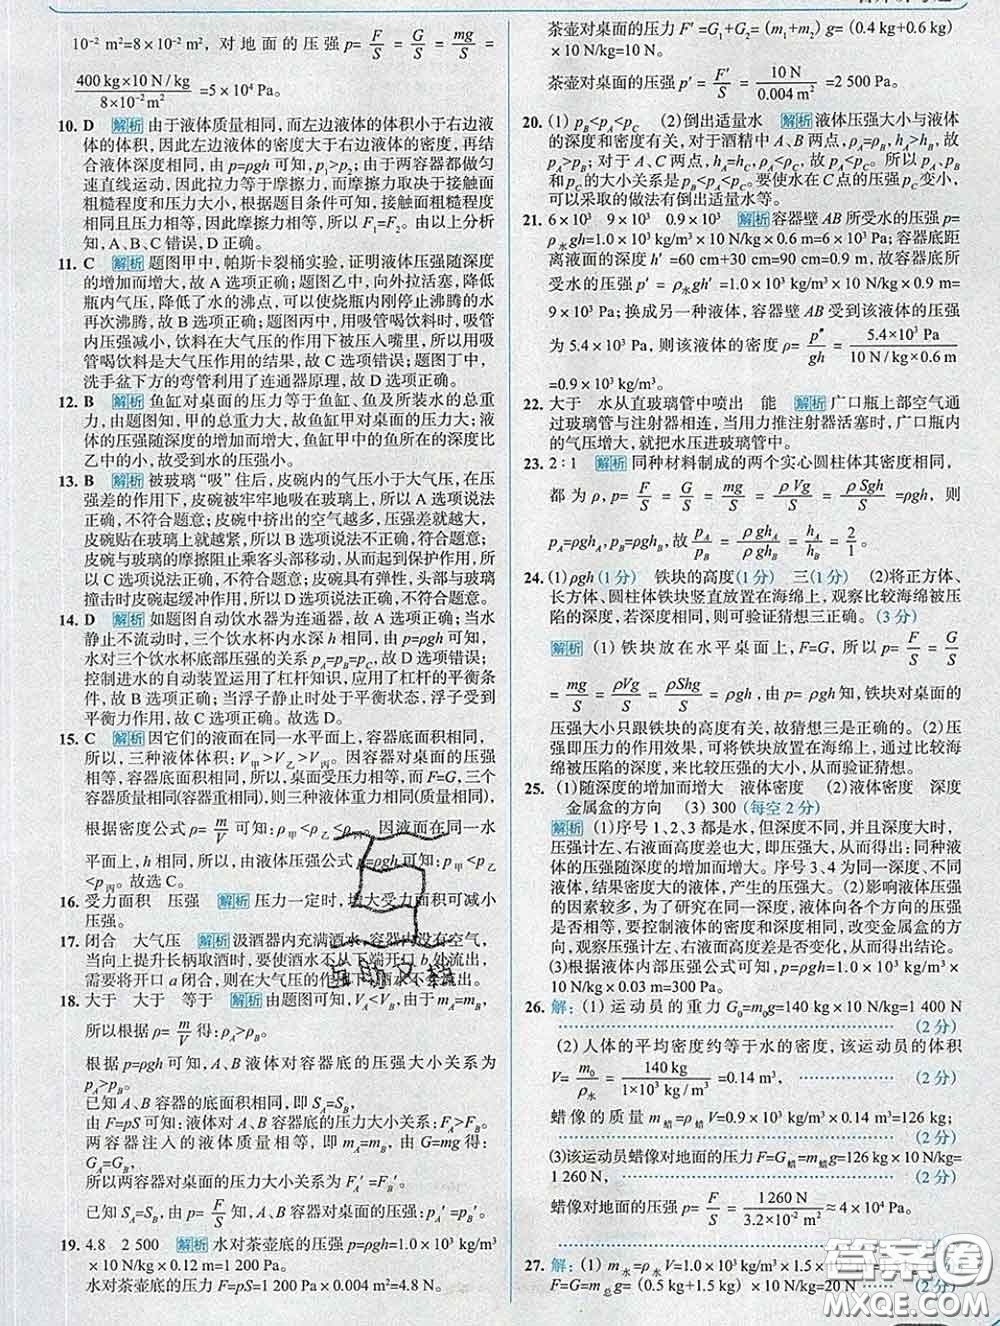 10⁻² m²=8×10⁻² m²,对地面的压强 p=F/S=G/S=mg/S=
400 kg×10 N/kg/8×10⁻² m²=5×10⁴ Pa。
10. D 解析 由于液体质量相同,而左边液体的体积小于右边液
体的体积,因此左边液体的密度大于右边液体的密度,再结
合液体深度相同,由 p=ρgh 可知,p₁>p₂;由于两容器都做匀
速直线运动,因此拉力等于摩擦力,而摩擦力取决于接触面
粗糙程度和压力大小,根据题目条件可知,接触面粗糙程度
相同且压力相等,因此摩擦力相等,所以 F₁=F₂。由以上分析
知,A、B、C 错误,D 正确。
11. C 解析 题图甲中,帕斯卡裂桶实验,证明液体压强随深度
的增加而增大,故 A 选项正确;题图乙中,向外拉活塞,降低
瓶内气压,降低了水的沸点,可以使烧瓶内刚停止沸腾的水
再次沸腾,故 B 选项正确;题图丙中,用吸管喝饮料时,吸管
内压强减小,饮料在大气压的作用下被压入嘴里,所以用吸
管喝饮料是大气压作用的结果,故 C 选项错误;题图丁中,
洗手盆下方的弯管利用了连通器原理,故 D 选项正确。
12. B 解析 鱼缸对桌面的压力等于鱼缸、鱼及所装水的总重
力,由题图知,甲的总重力大,故鱼缸甲对桌面的压力大;液
体的压强随深度的增加而增大,鱼缸甲中的鱼所在的深度比
乙中的小,故受到水的压强小。
13. B 解析 被玻璃“吸”住后,皮碗内的气压小于大气压,在压
强差的作用下,皮碗被牢牢地吸在玻璃上,所以 A 选项说法
正确,不符合题意;皮碗中挤出的空气越多,压强差就越大,
皮碗贴在玻璃上就越紧,所以 B 选项说法不正确,符合题意;
皮碗与玻璃的摩擦阻止乘客头部移动,从而起到保护作用,所
以 C 选项说法正确,不符合题意;皮碗具有弹性,头部与玻璃
撞击时皮碗起缓冲作用,所以 D 选项说法正确,不符合题意。
14. D 解析 如题图自动饮水器为连通器,故 A 选项正确;当水
静止不流动时,三个饮水杯内水深 h 相同,由 p=ρgh 可知,
水对三个饮水杯底部压强的关系 pA=pB=pC,故 D 选项错误;
控制进水的自动装置运用了杠杆知识,应用了杠杆的平衡条
件,故 B 选项正确;当浮子静止时处于平衡状态,浮子受到
平衡力作用,故 C 选项正确。故选 D。
15. C 解析 因它们的液面在同一水平面上,容器底面积相同,
所以,三种液体体积:V甲>V乙>V丙。因容器对桌面的压强
相等,容器底面积相同,所以:桌面受压力相等,而 F=G,三个
容器质量相同(容器重相同),则三种液体重力相同(质量相同),
根据密度公式 ρ=m/V 可知:ρ甲<ρ乙<ρ丙。因液面在同一水
平面上,h 相同,所以,由液体压强公式 p=ρgh 可知:p甲<p乙
<p丙。故选 C。
16. 受力面积 压强 解析 压力一定时,增大受力面积可减小
压强。
17. 闭合 大气压 解析 汲酒器内充满酒水,容器内没有空气,
当向上提升长柄取酒时,要使酒水不从下端开口 b 外流出,
需要将开口 a 闭合,则在大气压的作用下酒水不会流出。
18. 大于 大于 等于 解析 由题图可知,VA<VB,由于 mA=mB,
所以根据 ρ=m/V 得:ρA>ρB。
根据 p=ρgh 可知,A、B 液体对容器底的压强大小关系为
pA>pB。
已知 A、B 容器的底面积相同,即 SA=SB,
由 F=pS 可知:液体对 A、B 容器底的压力大小关系:FA>FB。
两容器注入的液体质量相等,即 mA=mB,由 G=mg 得:
GA=GB,
所以两容器对桌面的压力大小关系为 FA′=FB′。
已知 SA=SB,由 p=F/S 知,A、B 容器对桌面的压强:pA′=pB′。
19. 4.8 2 500 解析 水对茶壶底的压强 p=ρgh=1.0×10³ kg/m³
×10 N/kg×0.12 m=1 200 Pa。
水对茶壶底的压力 F=pS=1 200 Pa×0.004 m²=4.8 N。
茶壶对桌面的压力 F′=G₁+G₂=(m₁+m₂)g=(0.4 kg+0.6 kg)
×10 N/kg=10 N。
茶壶对桌面的压强 p′=F′/S=10 N/0.004 m²=2 500 Pa。
20. (1) pB<pA<pC (2)倒出适量水 解析 液体压强大小与液体
的深度和密度有关,对于酒精中 A、B 两点,ρA=ρB,hA>hB,故
pA>pB;对于 A、C 两点,hA=hC,ρA<ρC,故 pA<pC。所以 pA、pB
和 pC的大小关系是 pB<pA<pC。要使水在 C 点的压强 pC变小,
可以采取的做法有倒出适量水等。
21. 6×10³ 9×10³ 0.9×10³ 解析 容器壁 AB 所受水的压强 p=
ρ水gh=1.0×10³ kg/m³×10 N/kg×0.6 m=6×10³ Pa;容器底距
离液面的深度 h′=60 cm+30 cm=90 cm=0.9 m,故容器底所
受水的压强 p′=ρ水gh′=1.0×10³ kg/m³×10 N/kg×0.9 m=
9×10³ Pa;换成另一种液体,容器壁 AB 受到该液体的压强
为 5.4×10³ Pa,则该液体的密度 ρ=p″/gh=5.4×10³ Pa/10 N/kg×0.6 m
=0.9×10³ kg/m³。
22. 大于 水从直玻璃管中喷出 能 解析 广口瓶上部空气通
过玻璃管与注射器相连,当用力推注射器活塞时,广口瓶内
的气压增大,就把水压进玻璃管中。
23. 2∶1 解析 同种材料制成的两个实心圆柱体其密度相同,
都为 ρ,p=F/S=G/S=mg/S=ρVg/S=ρSgh/S=ρgh,则
pA=ρghA,pB=ρghB,故 pA/pB=ρghA/ρghB=hA/hB=2/1。
24. (1)ρgh(1 分) 铁块的高度(1 分) 三(1 分) (2)将正方体、
长方体、圆柱体铁块竖直放置在海绵上,观察比较海绵被压
陷的深度,若深度相同,则可验证猜想三正确。(3 分)
解析 (1)铁块放在水平桌面上,F=G,所以 p=F/S=G/S
=mg/S=ρVg/S=ρShg/S=ρgh,由 p=ρgh 知,铁块对桌面的
压强大小只跟铁块的高度有关,故猜想三是正确的。(2)压
强即压力的作用效果,可将铁块放置在海绵上,通过比较海
绵被压陷的深度,来比较压强的大小,从而验证猜想。
25. (1)随深度的增加而增大 液体密度 (2)液体密度 深度
金属盒的方向 (3) 300 (每空 2 分)
解析 (1)序号 1、2、3 都是水,但深度不同,并且深度大时,
压强计左、右液面高度差也大,即压强大,从而得出:同种液
体的压强随深度的增加而增大。序号 3、4 为同一深度、不同
液体,结果密度大的液体,产生的压强大。(2)影响液体压强
的因素较多,为了研究在同一深度,液体向各个方向的压强
是否相等,要控制液体的密度和深度相同,改变金属盒的方
向,观察压强计左、右液面高度差是否变化,从而得出结论。
(3)根据液体内部压强公式可知,p=ρ水gh=1.0×10³ kg/m³×10 N/kg×
0.03 m=300 Pa。
26. 解:(1)运动员的重力 G₀=m₀g=140 kg×10 N/kg=1 400 N
(2 分)
(2)人体的平均密度约等于水的密度,该运动员的体积
V=m₀/ρ水=140 kg/1×10³ kg/m³=0.14 m³, (2 分)
蜡像的质量 m蜡=ρ蜡V=0.9×10³ kg/m³×0.14 m³=126 kg;
(2 分)
(3)该运动员蜡像对地面的压力 F=G蜡=m蜡g=126 kg×10 N/kg=
1 260 N, (2 分)
蜡像对地面的压强 p=F/S=1 260 N/3.2×10⁻² m²≈4×10⁴ Pa。
27. 解:(1) m水=ρ水V=1.0×10³ kg/m³×1.5×10
F=G=m总g=(0.5 kg+1.5 kg)×10 N/kg=20 N (2 分)
答案圈
MXQE.COM